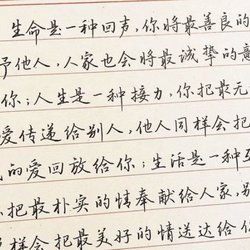 生命是一种回声,你将最善良的
予他人,人家也会将最诚挚的意
你;人生是一种接力,你把最无
爱传递给别人,他人同样会把
的爱回放给你;生活是一种互
把最朴实的情奉献给人家,别
样会把最美好的情送达给你